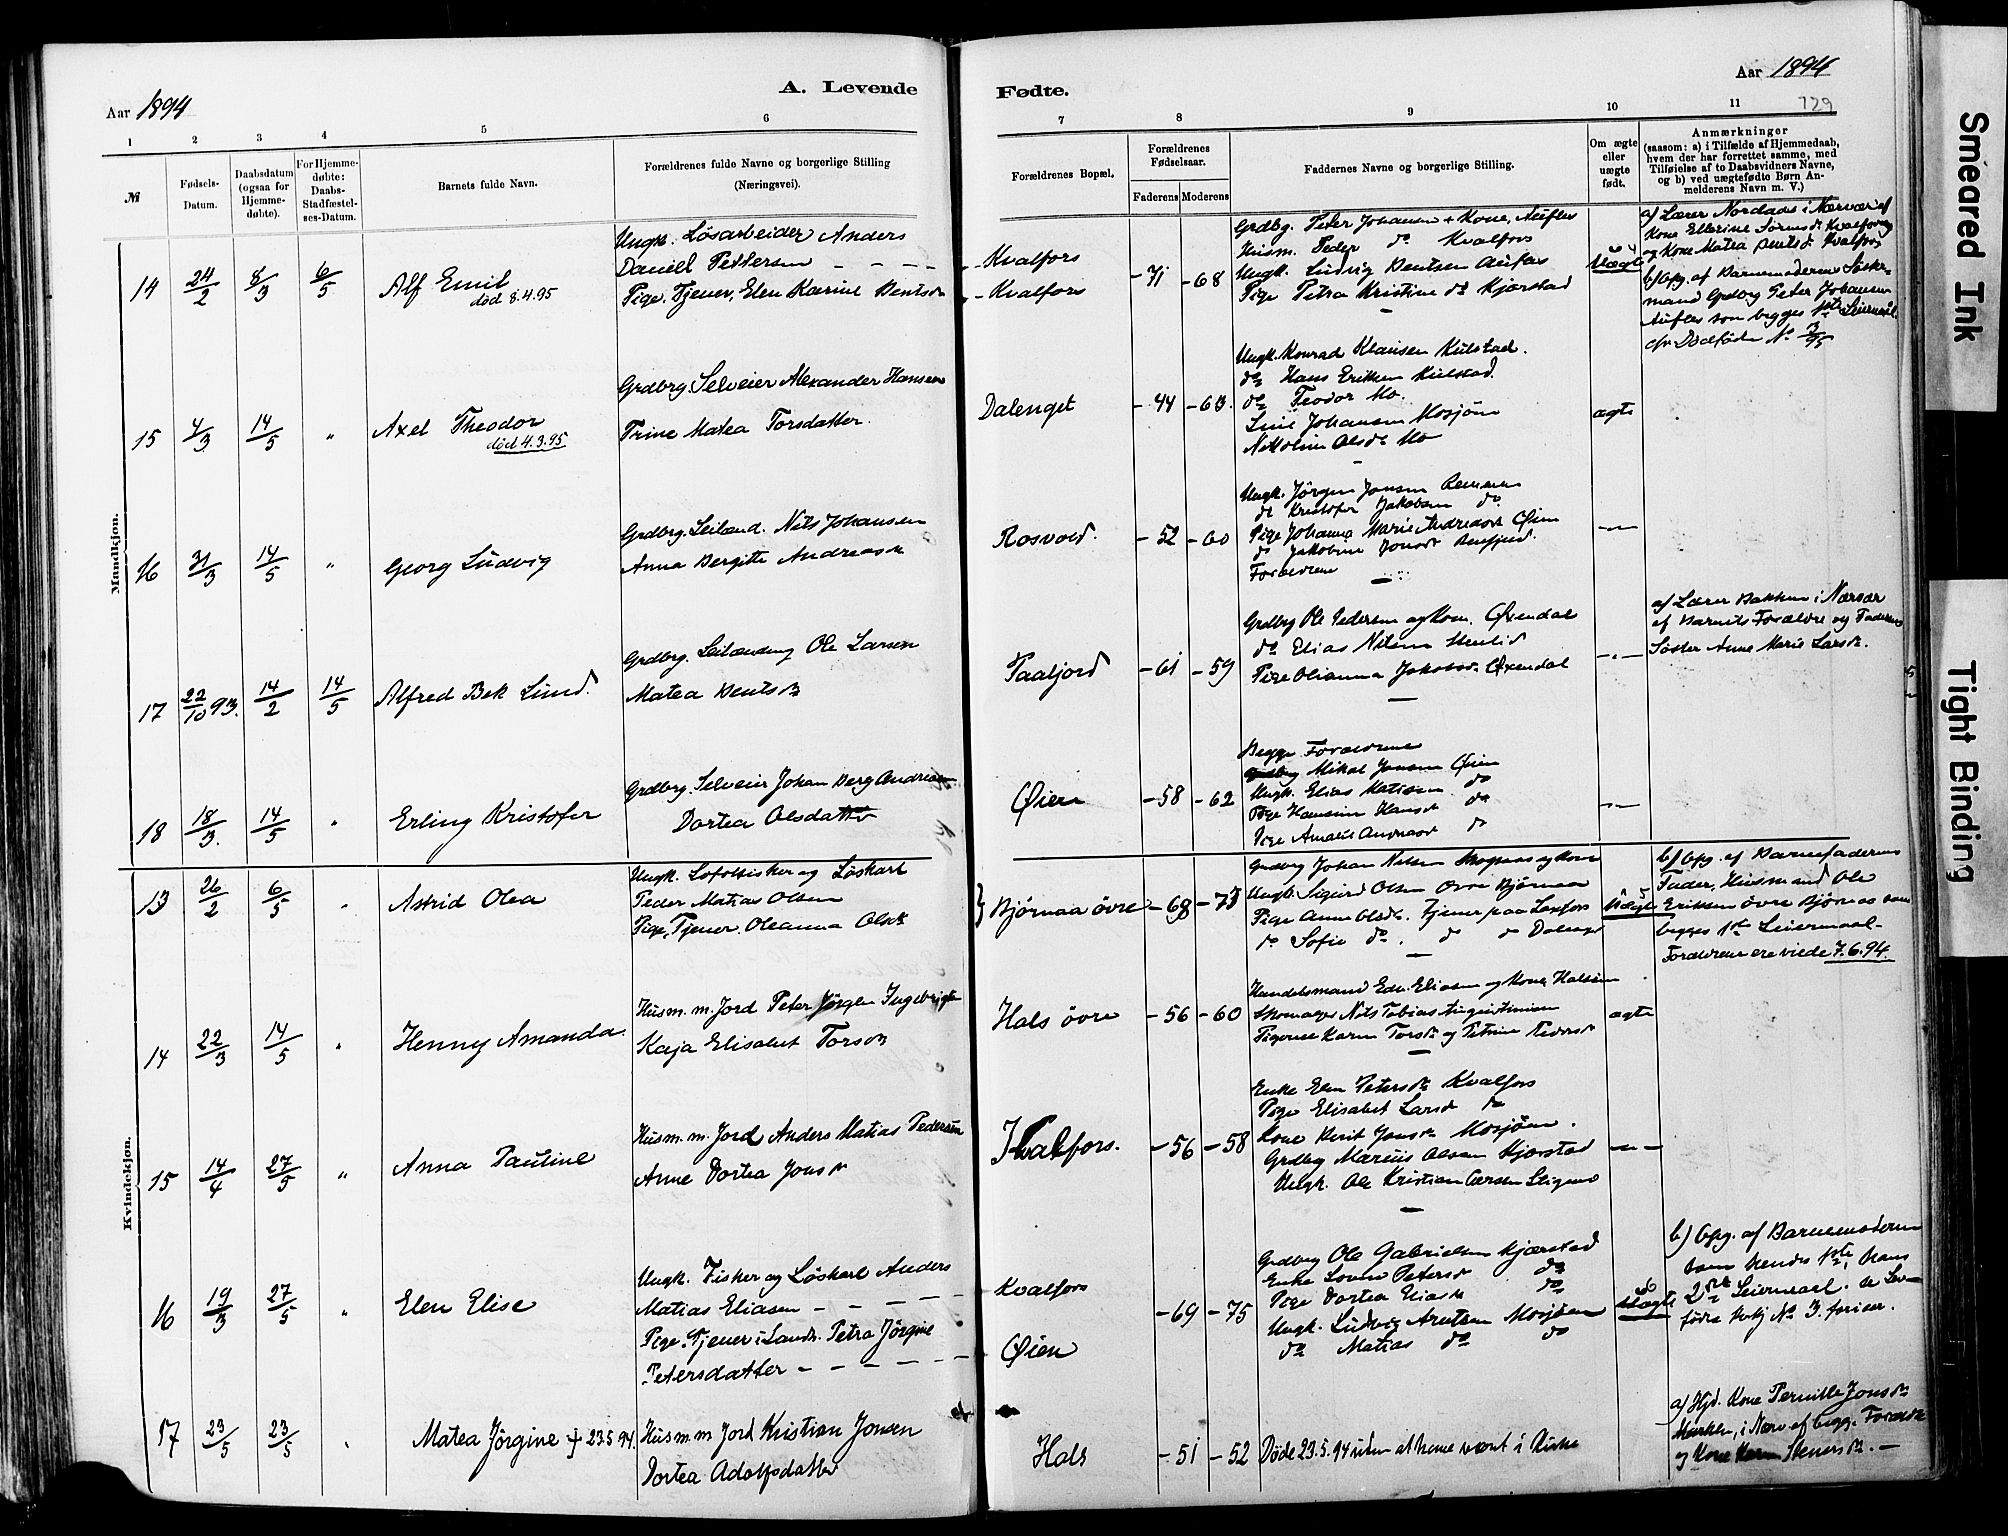 Aar 1894
A. Levende
1 2 3 4 5 6
№
Fødsels-
Datum.
Daabsdatum
(ogsaa for
Hjemme-
døbte).
For Hjemme-
døbte:
Daabs-
Stadfæstel-
ses-Datum.
Barnets fulde Navn.
Forældrenes fulde Navne og borgerlige Stilling
(Næringsvei).
Mandkjøn.
Ungk. Løsarbeider Anders
Daniel Pettersen – – – –
14 24/2 8/3 6/5 Alf Emil
død 8.4.95
Pige, Tjener, Elen Karine Bentsd.
Grdbrg. Selveier Alexander Hansen
15 4/3 14/5 " Axel Theodor
død 4.3.95
Trine Matea Torsdatter.
Grdbrg. Leilænd. Nils Johansen
16 31/3 14/5 " Georg Ludvig
Anna Bergitte Andreasd.
Grdbrg. Leilænding Ole Larsen
17 22/10 93. 14/2 14/5 Alfred Bek Lund.
Matea Bentsd.
Grdbrg. Selveier Johan Berg Andreasen
18 18/3. 14/5 " Erling Kristofer
Dortea Olsdatter
Kvindekjøn.
Ungk. Lofotfisker og Løskarl
13 26/2 6/5 " Astrid Olea
Peder Matias Olsen
Pige, Tjener. Oleanna Olsd.
Husm. m. Jord Peter Jörgen Ingebrigts.
14 22/3 14/5 " Henny Amanda
Kaja Elisabet Torsd.
Husm. m. Jord Anders Matias Pedersen
15 14/4 27/5 " Anna Pauline
Anne Dortea Jonsd.
Ungk. Fisker og Løskarl Anders
16 19/3 27/5 " Elen Elise
Matias Eliasen – – – –
Pige. Tjener i Landb. Petra Jörgine
Petersdatter – – – –
17 23/5 23/5 " Matea Jörgine † 23.5.94.
Husm. m Jord Kristian Jonsen
Dortea Adolfsdatter
Aar 1894
Fødte.
129
7 8 9 10 11
Forældrenes Bopæl.
Forældrenes
Fødselsaar.
Faderens Moderens
Faddernes Navne og borgerlige Stilling.
Om ægte
eller
uægte
født.
Anmærkninger
(saasom: a) i Tilfælde af Hjemmedaab,
hvem der har forrettet samme, med
Tilføielse af to Daabsvidners Navne,
og b) ved uægtefødte Børn An-
melderens Navn m. V.)
Kvalfors
Kvalfors
-71 -68
Grdbg. Peter Johansen + Kone, Aufles
Husm. Peder do Kvalfors
Ungk. Ludvig Bentsen Aufles
Pige Petra Kristine do Kjærstad
Uægte
a) Lærer Nordaas i Nærvær af
Kone Ellerine Sørensd. Kvalfors
og Kone Matea Bentsd. Kvalfors
b) Opg. af Barnemoderens Søster-
mand Grdbrg Peter Johansen
Aufles som begges 1ste Leiermaal.
cfr Dødfødte No 3/95
Dalenget -44 -63.
Ungk. Konrad Klausen Kulstad.
do Hans Eriksen Kulstad.
do Teodor Mo.
Line Johansen Mosjøen
Nikoline Olsd. Mo
ægte
Rosvold. -52 -60
Ungk. Jörgen Jonsen
do Kristofer Jakobsen do
Pige Johanna Marie Andreasd. Øien
do Jakobine Jonsd.
Forældrene
–"–
Taafjord -61 -59
Grdbrg Ole Pedersen og Kone. Øxendal
do Elias Nilsen Stenlid
Pige Olianna Jakobsd. Øxendal
–"–
a) Lærer Bakken i Nærvær
af Barnets Forældre og Faderens
Søster Anne Marie Larsd.
Øien -58 -62
Begge Forældrene
Mikal Jonsen Øien
Ungk. Elias Matisen do
Pige Hansine Hansd. do
Pige Amalie Andreasd. do
–"–
Bjørnaa øvre -68 -73
Grdbrg Johan Nilsen Skogsaas og Kone
Ungk. Sigurd Olsen Øvre Bjørnaa
Pige Anne Olsd. Tjener paa Laxfors
do Sofie do. do do Dalenget
Uægte
b) Opg. af Barnefaderens
Fader, Husmand Ole
Eriksen øvre Bjørnaa som
begges 1ste Leiermaal-
Forældrene ere viede 7.6.94.
Hals øvre -56 -60
Handelsmand Edv. Eliasen og Kone, Halsøen
Skomager Nils Tobias Augustinusen
Pigerne Karen Torsd. og Petrine Pedersd.
ægte
Kvalfors. -56 -58
Enke Elen Petersd. Kvalfors
Pige Elisabet Larsd. do
Kone Berit Jonsd. Mosjøen.
Grdbrg Marius Olsen Kjærstad
Ungk. Ole Kristian Larsen
–"–
Kvalfors
Øien
-69 -75
Grdbrg Ole Gabrielsen Kjærstad
Enke Lovise Petersd. do
Pige Dortea Eliasd. do
Ungk. Ludvig Arntsen Mosjøen
do Matias do do
Uægte
b) Opg. af Barnemoderen
som hendes 1ste, hans
2det Leiermaal. Se Lev-
fødte Mkj No 3, forrige.
Hals -51 -52
Døde 23.5.94 uden at have været i Kirke
a) Hjd. Kone Pernille Jonsd.
Marken, i Nærv. af begge Forældre
og Kone Karen Stenersd. –
Smeared Ink
Tight Binding